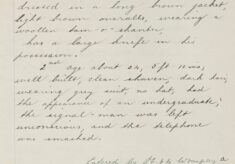 dressed in a long brown jacket,
light brown overalls, wearing a
woollen tam-o-shanter,
has a large knife in his
possession.
2nd age about 24, 5 ft 10 ins,
well built, clean shaven, dark hair,
wearing grey suit, no hat, had
the appearance of an undergraduate;
the signal-man was left
unconscious, and the telephone
was smashed.